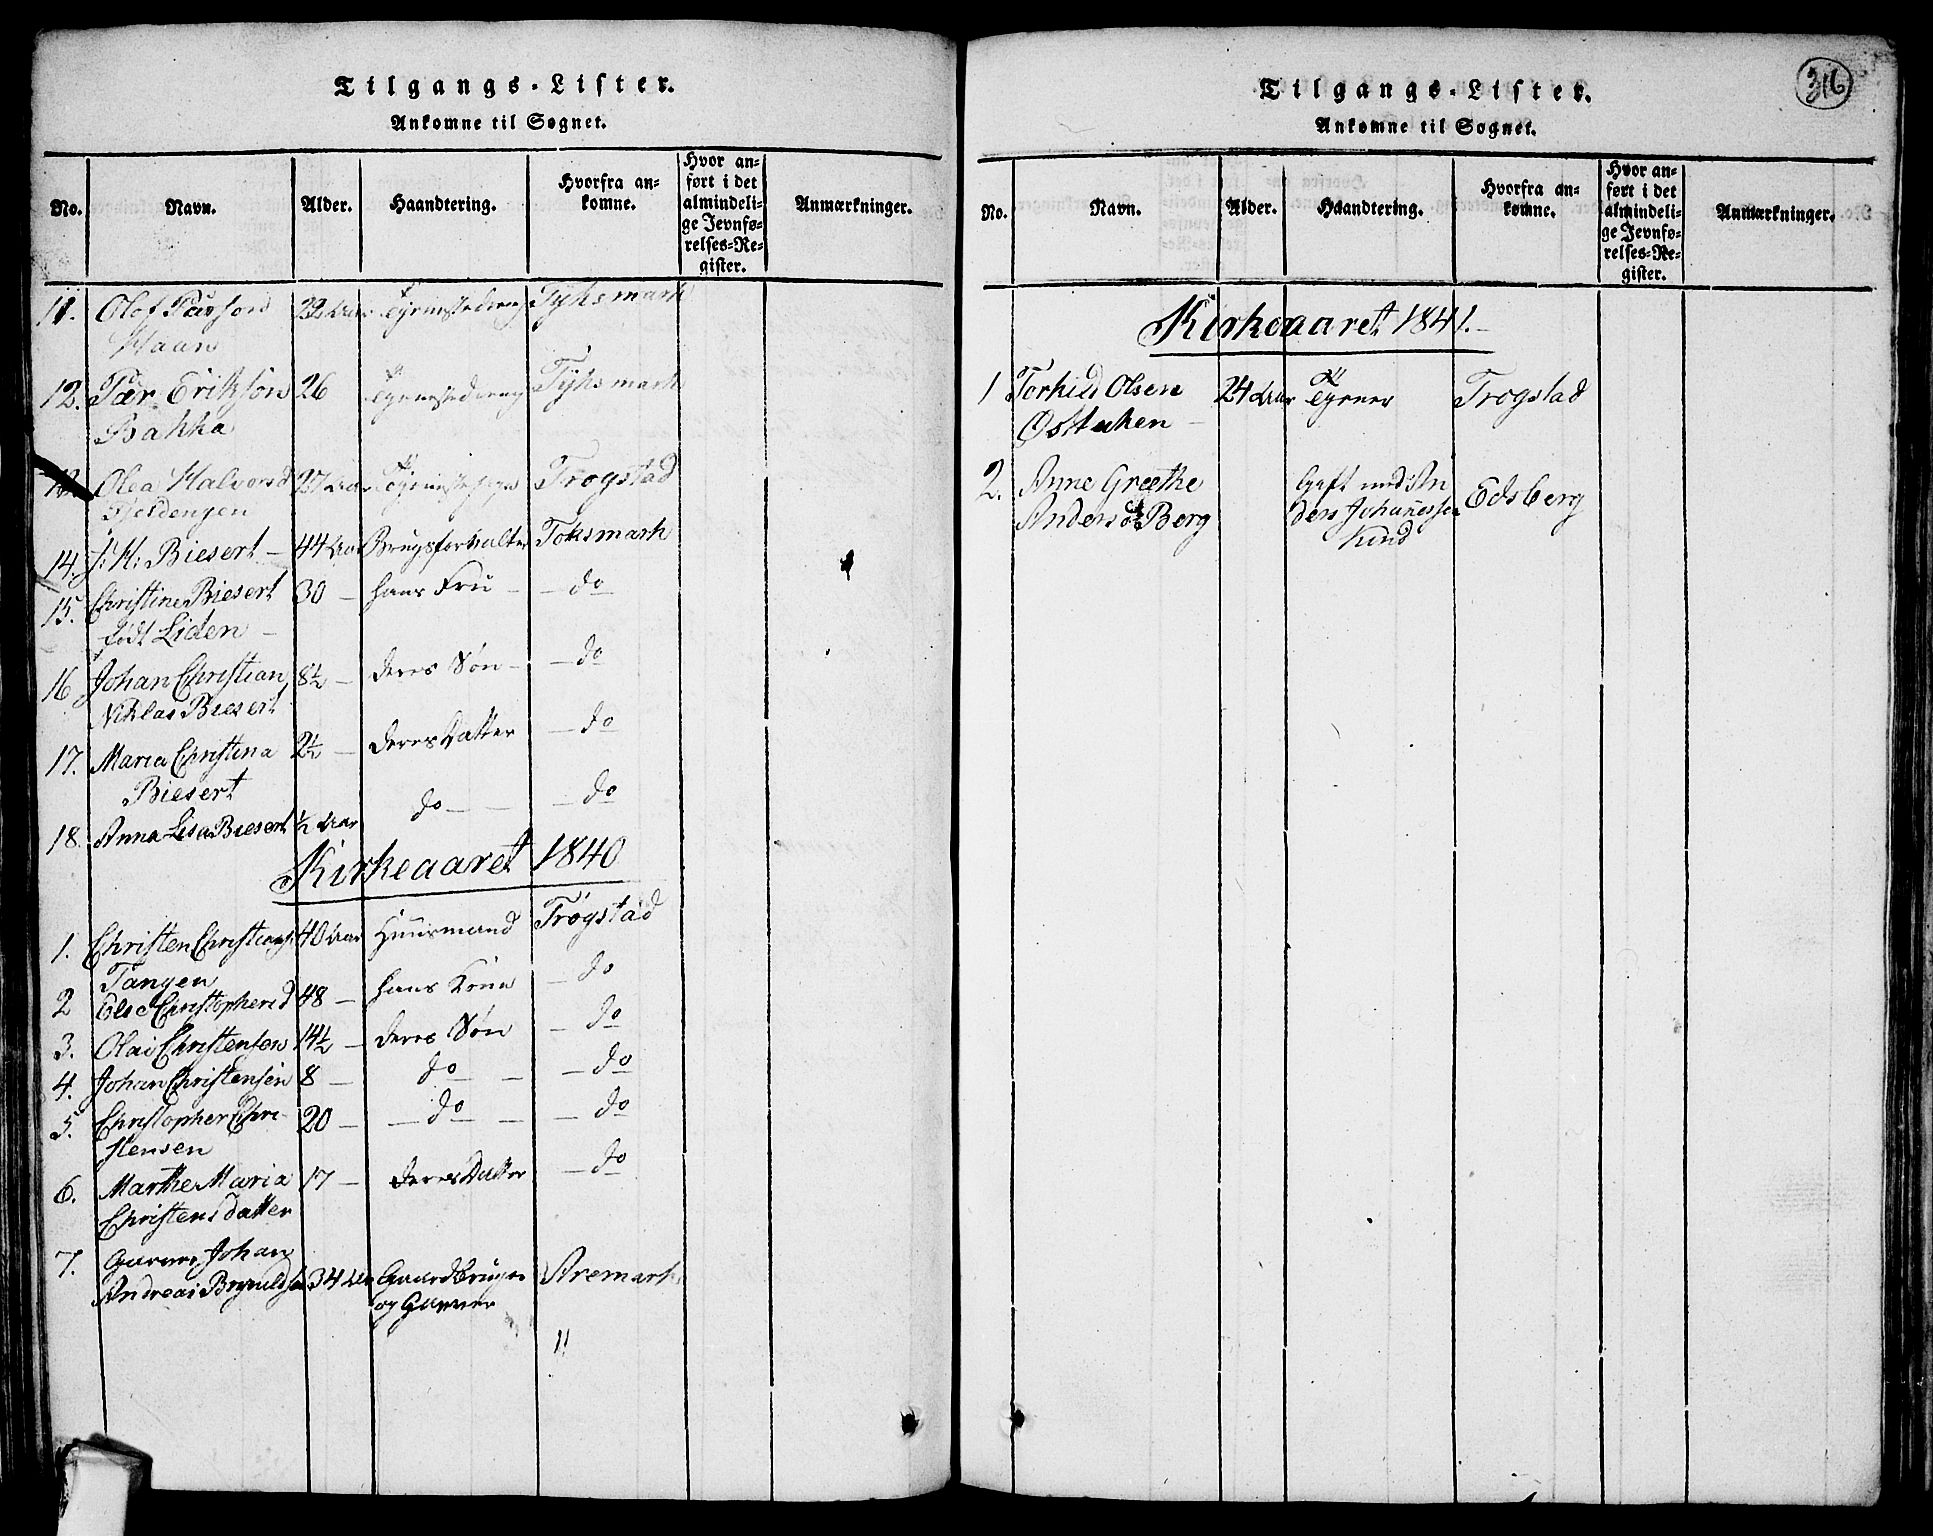 Tilgangs-Lister.
Ankomne til Sognet.
No. Navn. Alder. Haandtering. Hvorfra ankomne. Hvor anført i det almindelige Jevnførelses-Register. Anmærkninger.
11. Olof Pärson 22 Aar Tyenstedreng Tÿksmark
Haan
12. Pær Erikson 26 Tyenstedreng Tÿksmark
Bakka
13. Olea Halvorsd 27 Aar Tyenistepige Trogstad
14. J: H: Biesert 44 Aar Brugsforvalter Toksmark
15. Christine Biesert 30 — hans Fru — do
født Liden
16 Johan Christian 8½ — deres Søn — do
Niklas Biesert
17. Maria Christina 2½ — deres Datter — do
Biesert
18. Anna Lisa Biesert ½ Aar do — do
Kirkeaaret 1840
1. Christen Christians 40 Aar Huusmand Trogstad
Tangen
2 Else Christophersd 48 — hans Kone — do
3. Olai Christensen 14½ — deres Søn — do
4. Johan Christensen 8 — do — do
5. Christopher Chri- 20 — do — do
stensen
6. Marthe Maria 17 — deres Datter — do
Christensdatter
7. Garver Johan
Andreas 34 Aar Gaardbruger Aremark
og Garver
"
Tilgangs-Lister.
Ankomne til Sognet.
316
No. Navn. Alder. Haandtering. Hvorfra ankomne. Hvor anført i det almindelige Jevnførelses-Register. Anmærkninger.
Kirkeaaret 1841.
1 Torkild Olsen 24 Aar Tyener Trogstad
2. Anne Grethe Gift med An Edsberg
Andersd: Berg ders Johannesen
Kind